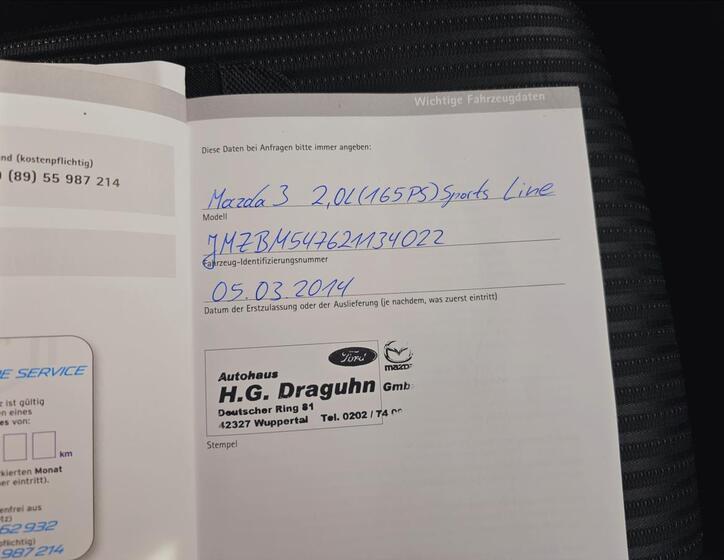 nd (kostenpflichtig)
(89) 55 987 214
E SERVICE
ist gültig
en eines
es von:
km
kierten Monat
er eintritt).
enfrei aus
tz)
62 932
pflichtig)
987 214
Wichtige Fahrzeugdaten
Diese Daten bei Anfragen bitte immer angeben:
Mazda 3 2,0L (165PS) Sports Line
Modell
JMZBM547621134022
Fahrzeug-Identifizierungsnummer
05.03.2014
Datum der Erstzulassung oder der Auslieferung (je nachdem, was zuerst eintritt)
Ford
mazda
Autohaus
H.G. Draguhn Gmb
Deutscher Ring 81
42327 Wuppertal Tel. 0202 / 74
Stempel